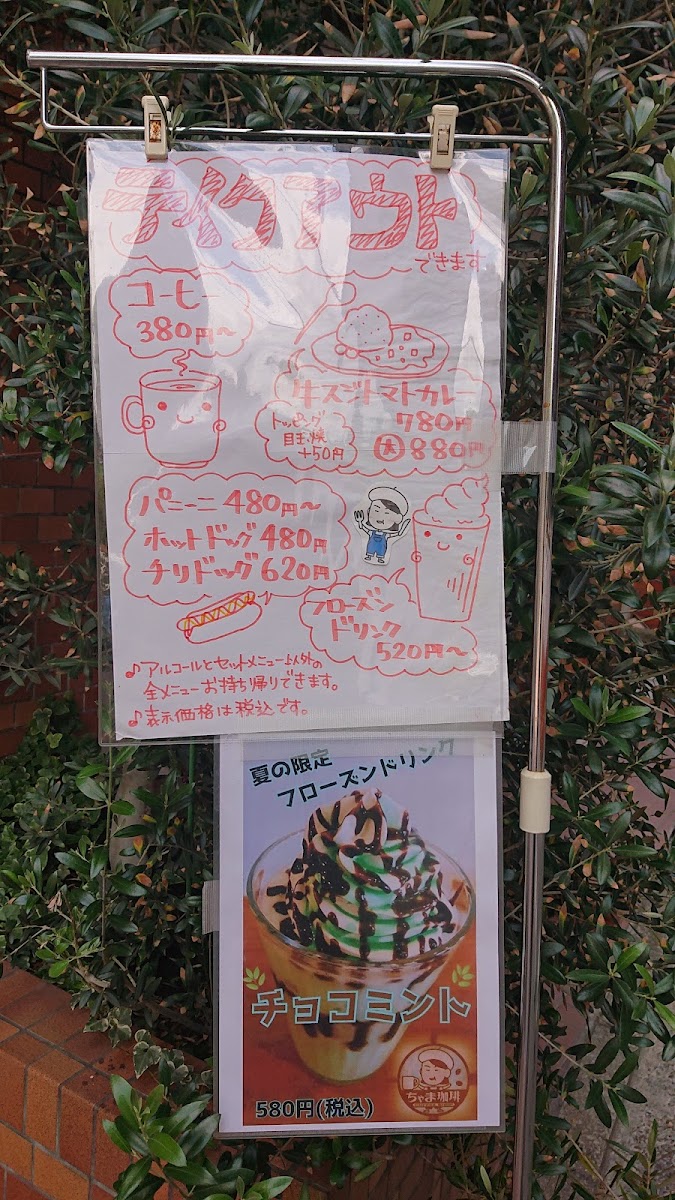 テイクアウト
できます
コーヒー
380円～
牛スジトマトカレー
780円
大 880円
トッピング
目玉焼
+50円
パニーニ 480円～
ホットドッグ 480円
チリドッグ 620円
フローズン
ドリンク
520円～
♪アルコールとセットメニュー以外の
全メニューお持ち帰りできます。
♪表示価格は税込です。
夏の限定
フローズンドリンク
チョコミント
ちゃま珈琲
580円(税込)